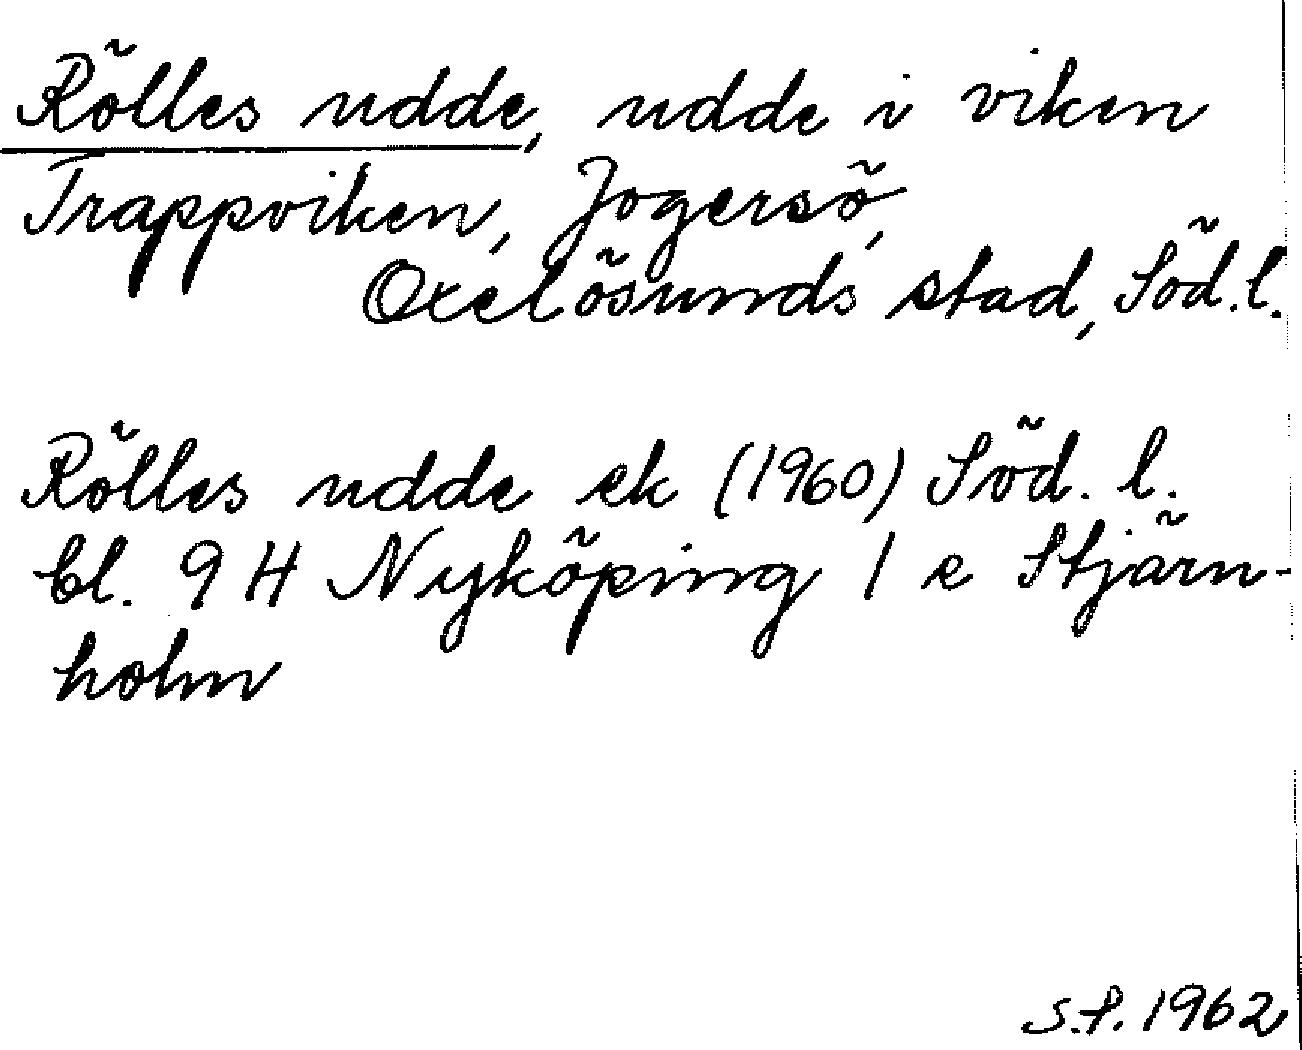 Rölles udde, udde i viken
Trappviken, Jogersö,
Oxelösunds stad, Söd.l.
Rölles udde ek (1960) Söd. l.
bl. 9 H Nyköping 1 e Stjärn-
holm
S.P. 1962